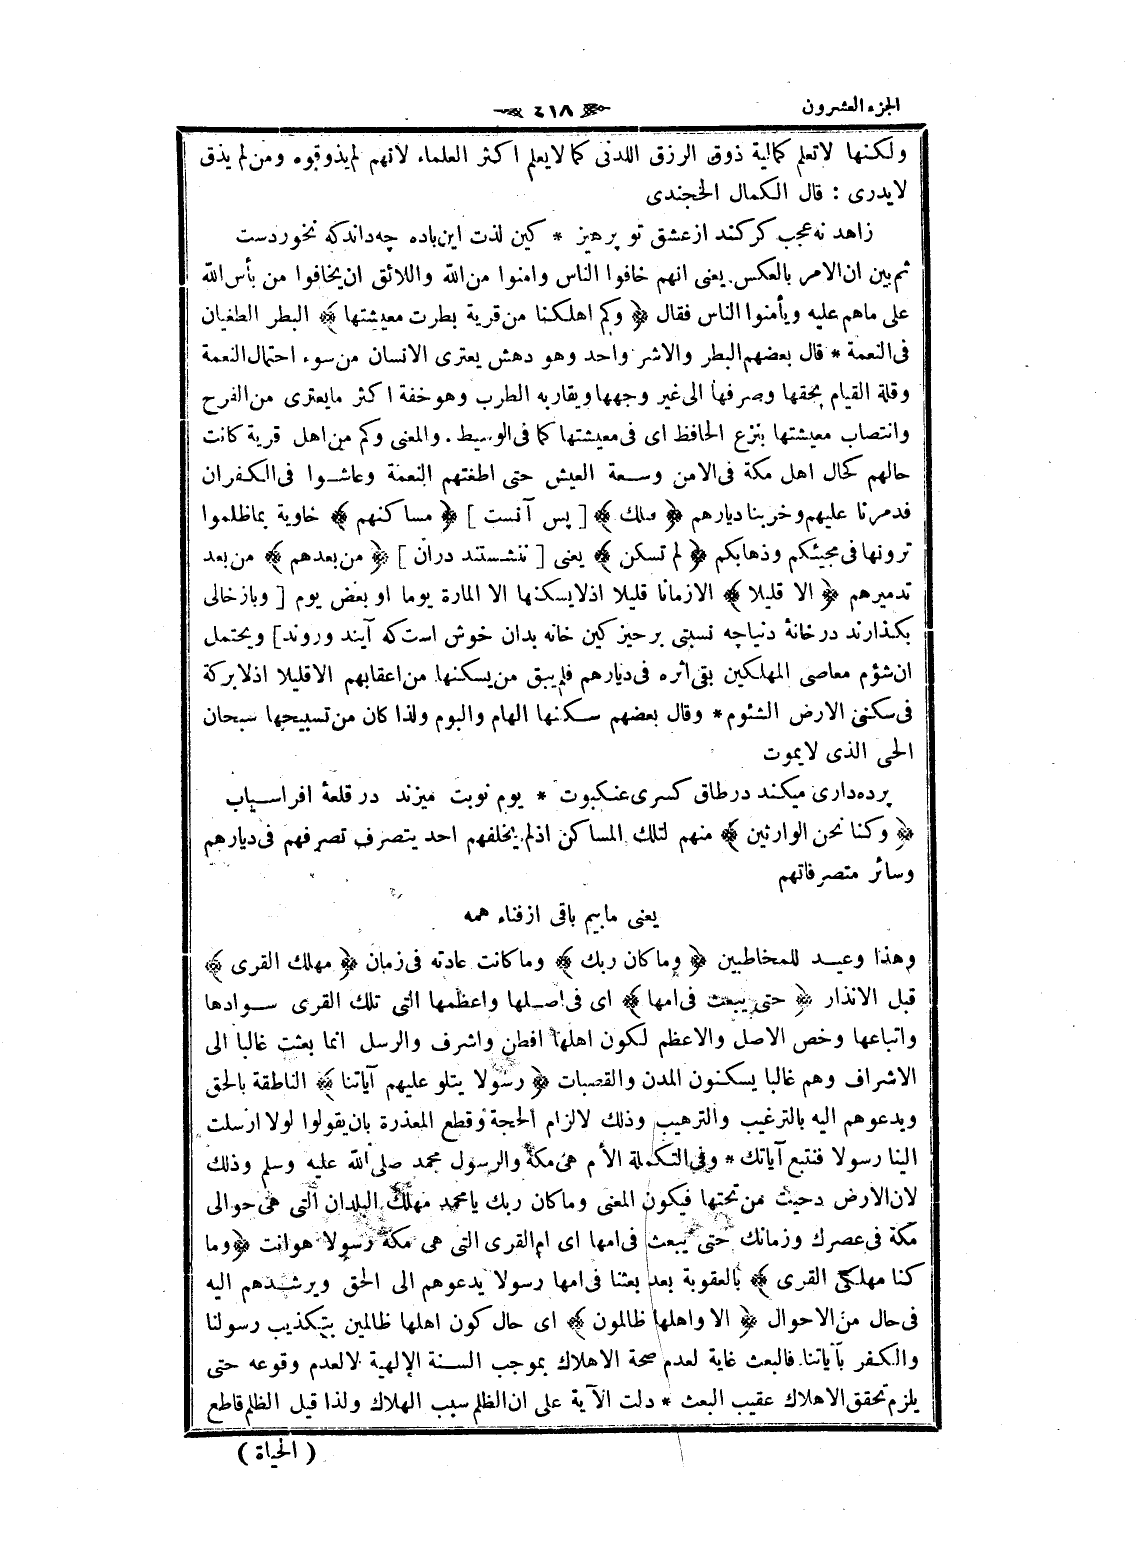 الجزء العشرون
٤١٨
ولكنها لاتعلم كمالية ذوق الرزق اللدنى كما لايعلم اكثر العلماء لانهم لم يذوقوه ومن لم يذق
لايدرى : قال الكمال الخجندى
زاهد نه عجب كركند ازعشق تو پرهيز * كين لذت اين باده چه داندكه نخوردست
ثم بين ان الامر بالعكس يعنى انهم خافوا الناس وامنوا من الله واللائق ان يخافوا من بأس الله
على ماهم عليه ويأمنوا الناس فقال ﴿ وكم اهلكنا من قرية بطرت معيشتها ﴾ البطر الطغيان
فى النعمة * قال بعضهم البطر والاشر واحد وهو دهش يعترى الانسان من سوء احتمال النعمة
وقلة القيام بحقها وصرفها الى غير وجهها ويقاربه الطرب وهو خفة اكثر مايعترى من الفرح
وانتصاب معيشتها بنزع الخافظ اى فى معيشتها كما فى الوسيط . والمعنى وكم من اهل قرية كانت
حالهم كحال اهل مكة فى الامن وسعة العيش حتى اطغتهم النعمة وعاشوا فى الكفران
فدمرنا عليهم وخربنا ديارهم ﴿ فتلك ﴾ [ پس آنست ] ﴿ مساكنهم ﴾ خاوية بماظلموا
ترونها فى مجيئكم وذهابكم ﴿ لم تسكن ﴾ يعنى [ ننشستند دران ] ﴿ من بعدهم ﴾ من بعد
تدميرهم ﴿ الا قليلا ﴾ الازمانا قليلا اذلايسكنها الا المارة يوما او بعض يوم [ وبازخالى
بكذارند درخانهٔ دنياچه نسبتى برحيز كين خانه بدان خوش است كه آيند وروند ] ويحتمل
ان شؤم معاصى المهلكين بقى اثره فى ديارهم فلم يبق من يسكنها من اعقابهم الاقليلا اذلابركة
فى سكنى الارض الشئوم * وقال بعضهم سكنها الهام والبوم ولذا كان من تسبيحها سبحان
الحى الذى لايموت
پرده دارى ميكند درطاق كسرى عنكبوت * يوم نوبت ميزند در قلعهٔ افراسياب
﴿ وكنا نحن الوارثين ﴾ منهم لتلك المساكن اذلم يخلفهم احد يتصرف تصرفهم فى ديارهم
وسائر متصرفاتهم
يعنى ماييم باقى ازفناء همه
وهذا وعيد للمخاطبين ﴿ وماكان ربك ﴾ وماكانت عادته فى زمان ﴿ مهلك القرى ﴾
قبل الانذار ﴿ حتى يبعث فى امها ﴾ اى فى اصلها واعظمها التى تلك القرى سوادها
واتباعها وخص الاصل والاعظم لكون اهلها افطن واشرف والرسل انما بعثت غالبا الى
الاشراف وهم غالبا يسكنون المدن والقصبات ﴿ رسولا يتلو عليهم آياتنا ﴾ الناطقة بالحق
ويدعوهم اليه بالترغيب والترهيب وذلك لالزام الحجة وقطع المعذرة بان يقولوا لولا ارسلت
الينا رسولا فنتبع آياتك * وفى التكملة الأم هى مكة والرسول محمد صلى الله عليه وسلم وذلك
لان الارض دحيت من تحتها فيكون المعنى وماكان ربك يامحمد مهلك البلدان التى هى حوالى
مكة فى عصرك وزمانك حتى يبعث فى امها اى ام القرى التى هى مكة رسولا هو انت ﴿ وما
كنا مهلكى القرى ﴾ بالعقوبة بعد بعثنا فى امها رسولا يدعوهم الى الحق ويرشدهم اليه
فى حال من الاحوال ﴿ الا واهلها ظالمون ﴾ اى حال كون اهلها ظالمين بتكذيب رسولنا
والكفر بآياتنا فالبعث غاية لعدم صحة الاهلاك بموجب السنة الإلهية لالعدم وقوعه حتى
يلزم تحقق الاهلاك عقيب البعث * دلت الآية على ان الظلم سبب الهلاك ولذا قيل الظلم قاطع
( الحياة )